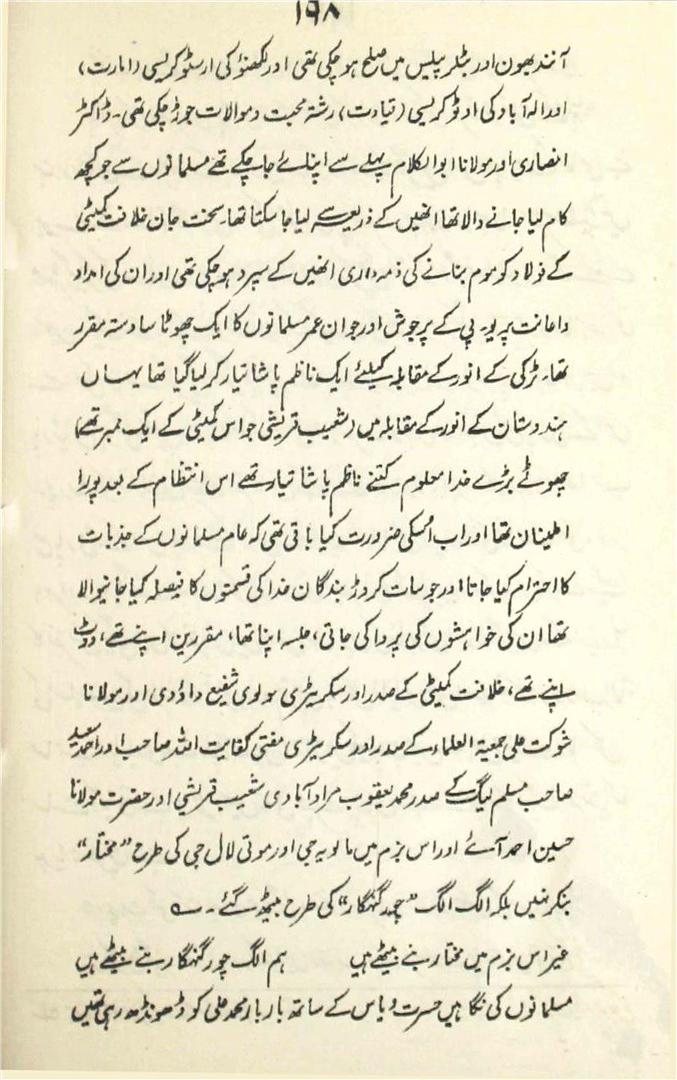 ۱۹۸
آنند بھون اور بٹلر پیلس میں صلح ہوچکی تھی اور لکھنؤ کی ارسٹوکریسی (امارت)
اور الہ آباد کی اوٹوکریسی (قیادت) رشتہ محبت و موالات جوڑ چکی تھی۔ ڈاکٹر
انصاری اور مولانا ابوالکلام پہلے سے اپنائے جاچکے تھے مسلمانوں سے جو کچھ
کام لیا جانے والا تھا انھیں کے ذریعہ سے لیا جاسکتا تھا۔ سخت جان خلافت کمیٹی
کے فولاد کو موم بنانے کی ذمہ داری انھیں کے سپرد ہوچکی تھی اور ان کی امداد
و اعانت پر یو۔ پی کے پرجوش اور جوان عمر مسلمانوں کا ایک چھوٹا سا دستہ مقرر
تھا۔ ٹرکی کے انور کے مقابلہ کیلئے ایک ناظم پاشا تیار کرلیا گیا تھا یہاں
ہندوستان کے انور کے مقابلہ میں (شعیب قریشی جو اس کمیٹی کے ایک ممبر تھے)
چھوٹے بڑے خدا معلوم کتنے ناظم پاشا تیار تھے اس انتظام کے بعد پورا
اطمینان تھا اور اب اُسکی ضرورت کیا باقی تھی کہ عام مسلمانوں کے جذبات
کا احترام کیا جاتا اور جو سات کروڑ بندگان خدا کی قسمتوں کا فیصلہ کیا جانیوالا
تھا ان کی خواہشوں کی پروا کی جاتی، جلسہ اپنا تھا، مقررین اپنے تھے، ووٹ
اپنے تھے، خلافت کمیٹی کے صدر اور سکریٹری مولوی شفیع داؤدی اور مولانا
شوکت علی جمعیۃ العلماء کے صدر اور سکریٹری مفتی کفایت اللہ صاحب اور احمد سعید
صاحب مسلم لیگ کے صدر محمد یعقوب مرادآبادی شعیب قریشی اور حضرت مولانا
حسین احمد آئے اور اس بزم میں مالویہ جی اور موتی لال جی کی طرح "مختار"
بنکر نہیں بلکہ الگ الگ "چور گنہگار" کی طرح بیٹھ گئے۔ ؎
غیر اس بزم میں مختار بنے بیٹھے ہیں ہم الگ چور گنہگار بنے بیٹھے ہیں
مسلمانوں کی نگاہیں حسرت و یاس کے ساتھ بار بار محمد علی کو ڈھونڈھ رہی تھیں